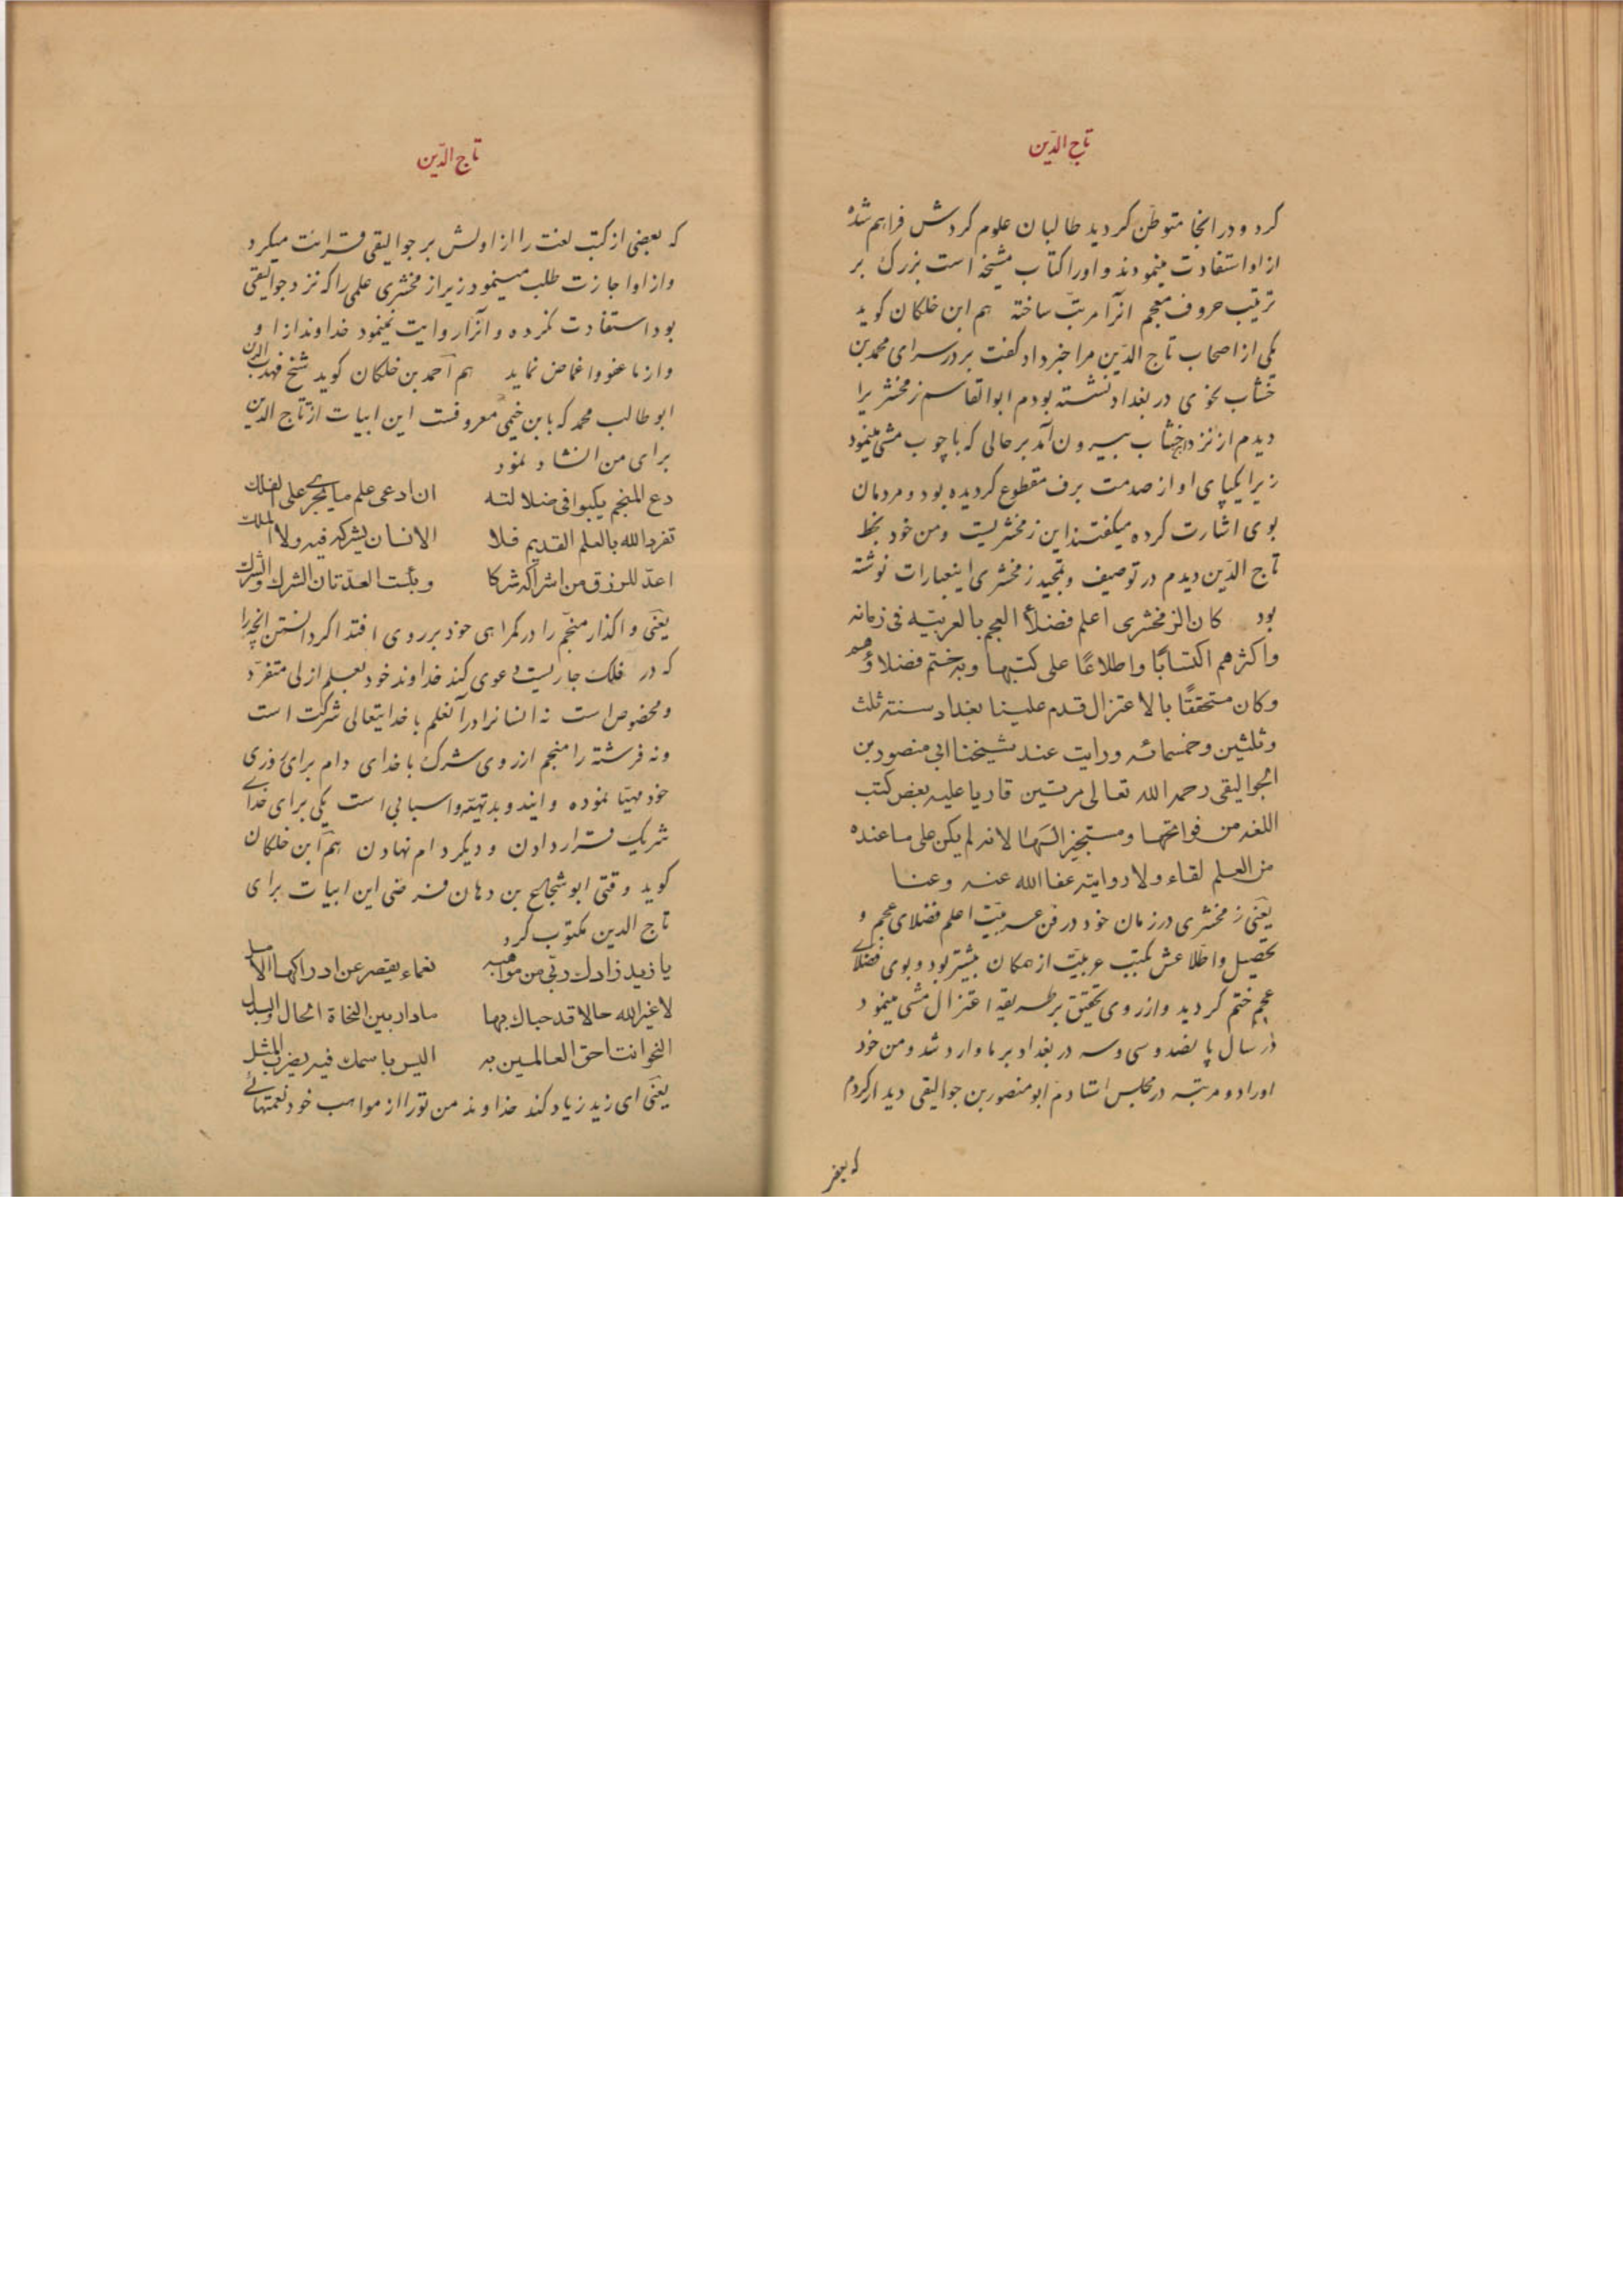 تاج الدّین
کرد و در انجا متوطّن کردید طالبان علوم کردش فراهم شده
از او استفادت مینمودند و او را کتاب مشیخه است بزرک بر
ترتیب حروف معجم انرا مرتب ساخته هم ابن خلکان کوید
یکی از اصحاب تاج الدّین مرا خبر داد کفت بر در سرای محمد بن
خشّاب نحوی در بغداد نشسته بودم ابوالقاسم زمخشریرا
دیدم از نزد خشّاب بیرون آمد بر حالی که با چوب مشی مینمود
زیرا یکپای او از صدمت برف مقطوع کردیده بود و مردمان
بوی اشارت کرده میکفتند این زمخشریست و من خود بخط
تاج الدّین دیدم در توصیف و تمجید زمخشری اینعبارات نوشته
بود کان الزمخشری اعلم فضلأ العجم بالعربیّه فی زمانه
واکثرهم اکتسابًا واطلاعًا علی کتبها وبه ختم فضلاؤهم
وکان متحققًا بالاعتزال قدم علینا بغداد سنة ثلث
وثلثین وخمسمائه ورایت عند شیخنا ابی منصور بن
الجوالیقی رحمه الله تعالی مرتین قاریا علیه بعض کتب
اللغه من فواتحها ومستجیز الها لانه لم یکن علی ما عنده
من العلم لقاء ولا روایته عفا الله عنه وعنا
یعنی زمخشری در زمان خود در فن عربیّت اعلم فضلای عجم و
تحصیل و اطلاعش بکتب عربیّت از همکان بیشتر بود و بوی فضلای
عجم ختم کردید و از روی تحقیق بر طریقه اعتزال مشی مینمود
در سال پانصد و سی و سه در بغداد بر ما وارد شد و من خود
او را دو مرتبه در مجلس استادم ابو منصور بن جوالیقی دیدار کردم
که بعضی
تاج الدّین
که بعضی از کتب لغت را از اولش بر جوالیقی قرائت میکرد
و از او اجازت طلب مینمود زیرا زمخشری علمی را که نزد جوالیقی
بود استفادت نکرده و آنرا روایت نمینمود خداوند از او
و از ما عفو و اغماض نماید هم احمد بن خلکان کوید شیخ مهذب الدین
ابو طالب محمد که بابن خیمی معروفست این ابیات از تاج الدین
برای من انشاد نمود
دع المنجم یکبوا فی ضلالته ان ادعی علم ما یجری علی الفلك
تفرد الله بالعلم القدیم فلا الانسان یشرکه فیه ولا الملك
اعدّ للرزق من اشراکه شرکا وبئست العدّتان الشرك والشرك
یعنی واکذار منجّم را در کمراهی خود بر روی افتد اکر دانستن انچه را
که در فلک جاریست دعوی کند خداوند خود بعلم ازلی متفرّد
و مخصوص است نه انسانرا در آنعلم با خدایتعالی شرکت است
و نه فرشته را منجم از روی شرک با خدای دام برای روزی
خود مهیّا نموده و ایندو بد تهیّه و اسبابی است یکی برای خدای
شریک قرار دادن و دیکر دام نهادن هم ابن خلکان
کوید وقتی ابو شجاع بن دهان فرضی این ابیات برای
تاج الدین مکتوب کرد
یا زید زادك ربّی من مواهبه نعماء یقصر عن ادراکها الامل
لا غیّر الله حالا قد حباك بها ما دار بین النحاة الحال والبدل
النحو انت احق العالمین به الیس باسمك فیه یضرب المثل
یعنی ای زید زیاد کند خداوند من تو را از مواهب خود نعمتهائی